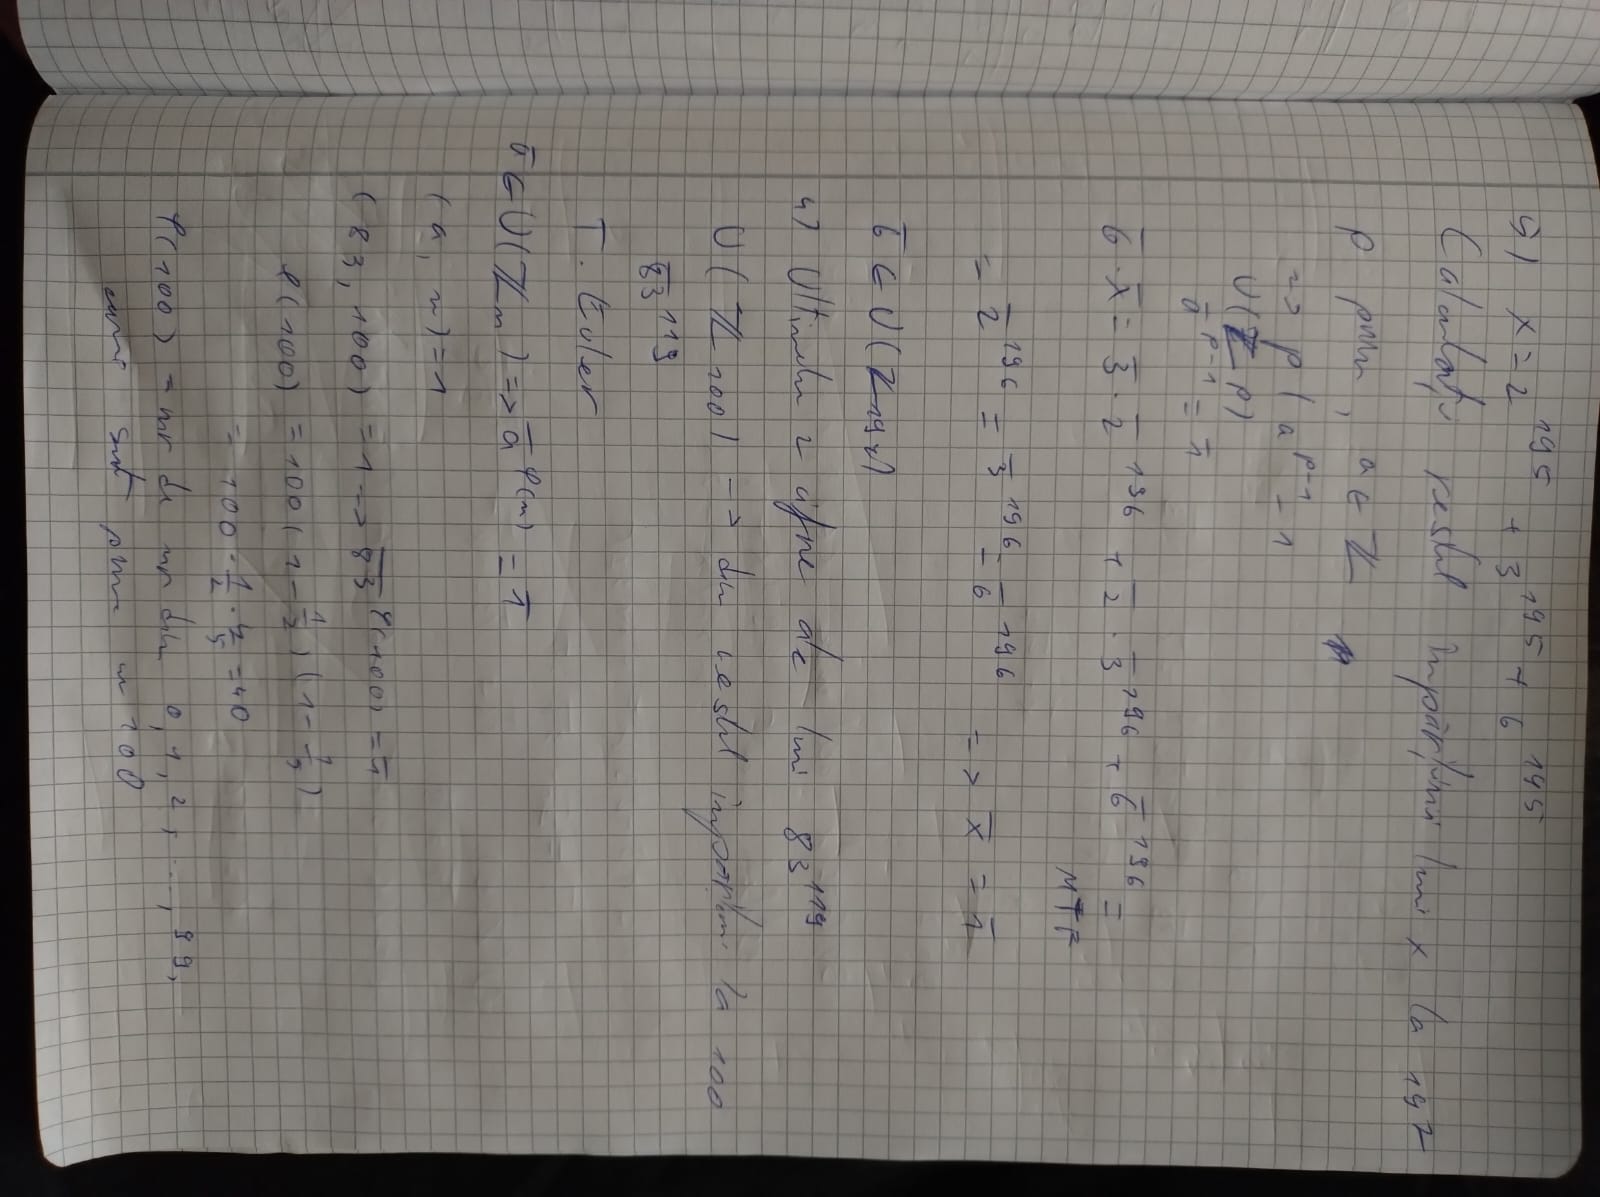 5) x = 2^195 + 3^195 + 6^195
Calculați restul împărțirii lui x la 197
p prim, a ∈ ℤ
=> p | a^(p-1) - 1
U(ℤp)
ā^(p-1) = 1̄
6̄ · x̄ = 3̄ · 2̄^196 + 2̄ · 3̄^196 + 6̄^196 =
MTF
= 2̄^196 = 3̄^196 = 6̄^196 => x̄ = 1̄
6̄ ∈ U(ℤ197)
4) Ultimele 2 cifre ale lui 83^119
U(ℤ100) --> din restul împărțirii la 100
8̄3̄^119
T. Euler
ā ∈ U(ℤn) => ā^φ(n) = 1̄
(a, n) = 1
(83, 100) = 1 --> 8̄3̄^φ(100) = 1̄
φ(100) = 100 (1 - 1/2) (1 - 1/5)
= 100 · 1/2 · 4/5 = 40
φ(100) = nr de nr din 0, 1, 2, ..., 99,
care sunt prime cu 100